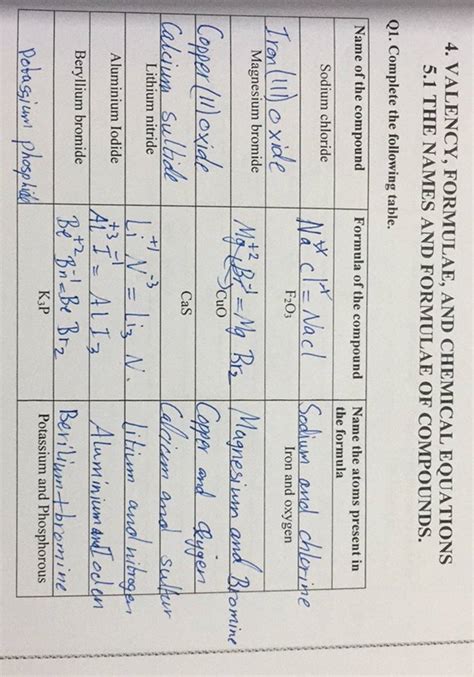 4. VALENCY, FORMULAE, AND CHEMICAL EQUATIONS
5.1 THE NAMES AND FORMULAE OF COMPOUNDS.
Q1. Complete the following table.
Name of the compound Formula of the compound Name the atoms present in the formula
Sodium chloride Na+x Cl-x = Nacl Sodium and chlorine
Iron(III) oxide F2O3 Iron and oxygen
Magnesium bromide Mg+2 Br-1 = Mg Br2 Magnesium and Bromine
Copper(II) oxide CuO Copper and oxygen
Calcium sulfide CaS Calcium and sulfur
Lithium nitride Li+1 N-3 = Li3 N. Litium and nitrogen
Aluminium Iodide Al+3 I-1 = Al I3 Aluminium and
Beryllium bromide Be+2 Br-1 = Be Br2 Berilium + bromine
potassium phosphide K3P Potassium and Phosphorous